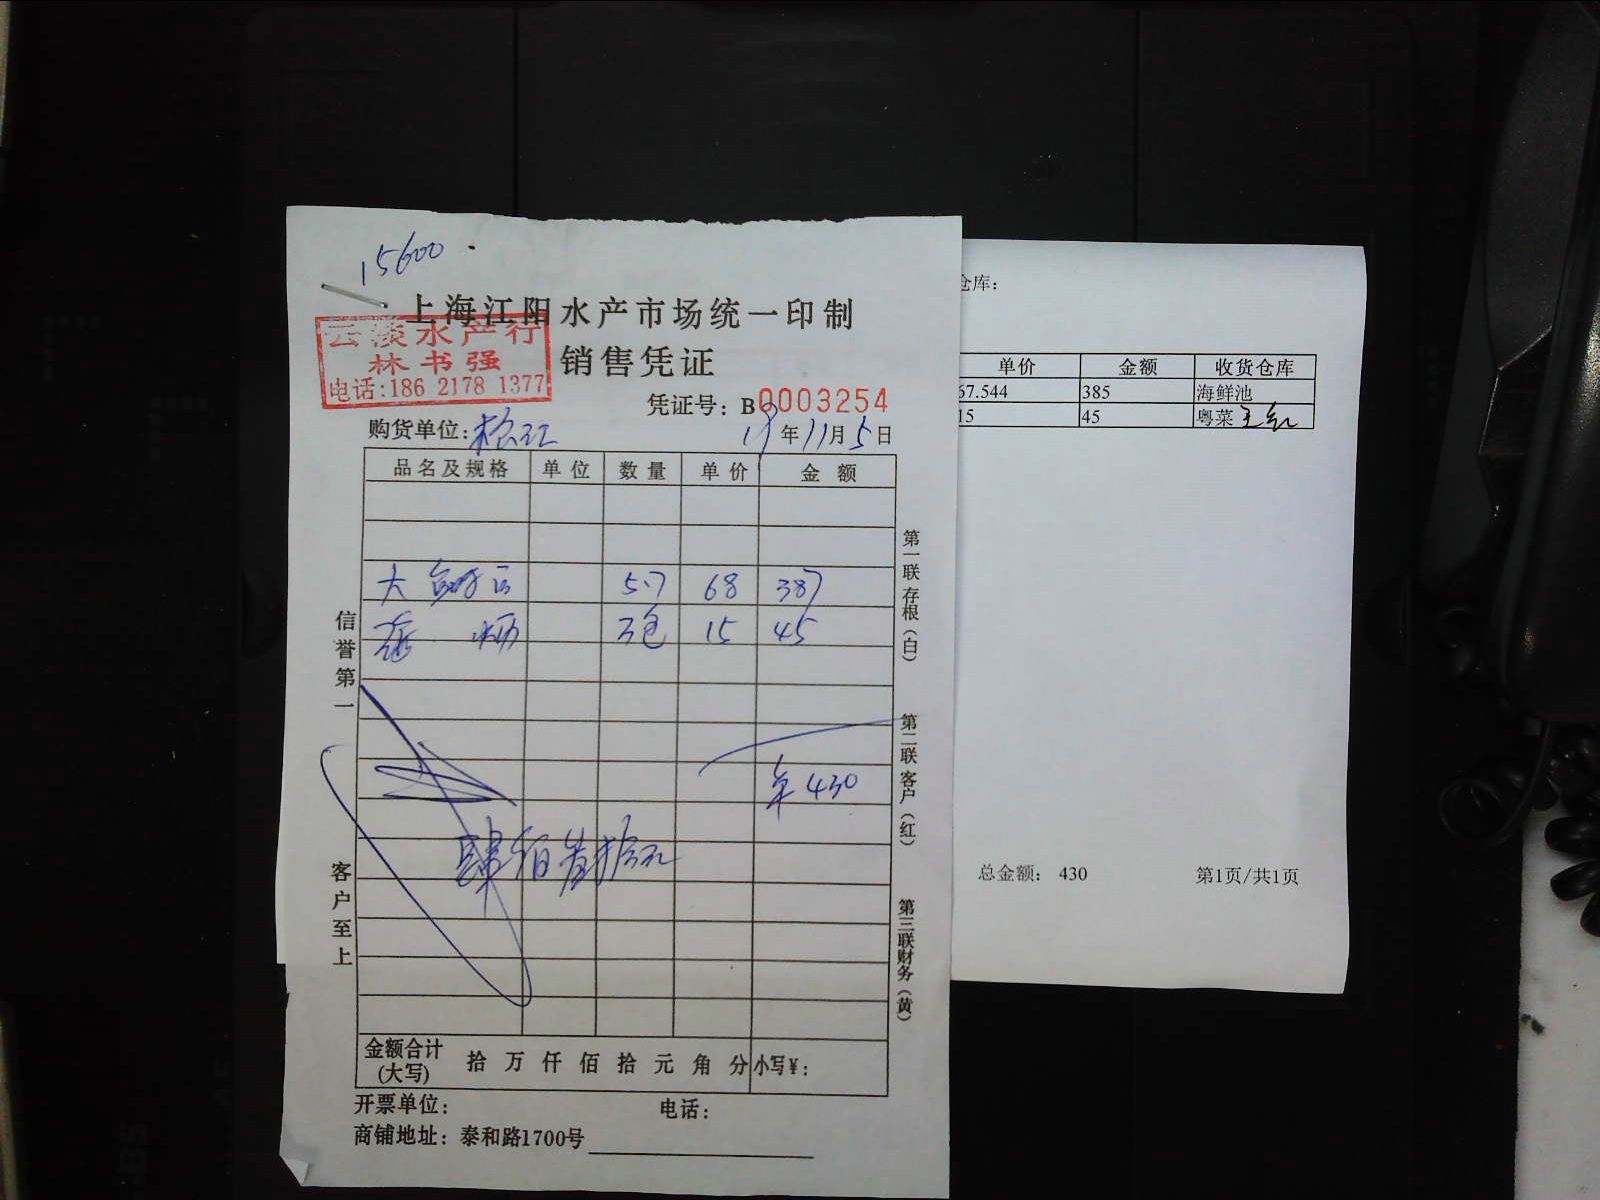 15600
上海江阳水产市场统一印制
云凌水产行
林书强
电话:186 2178 1377
销售凭证
凭证号: B0003254
购货单位:松江
19年11月5日
品名及规格 单位 数量 单价 金额
大 5.7 68 387
15 45
430
肆佰叁拾元
信誉第一
客户至上
第一联存根(白)
第二联客户(红)
第三联财务(黄)
金额合计(大写) 拾 万 仟 佰 拾 元 角 分 小写¥:
开票单位: 电话:
商铺地址: 泰和路1700号
仓库:
单价 金额 收货仓库
67.544 385 海鲜池
15 45 粤菜
总金额: 430 第1页/共1页